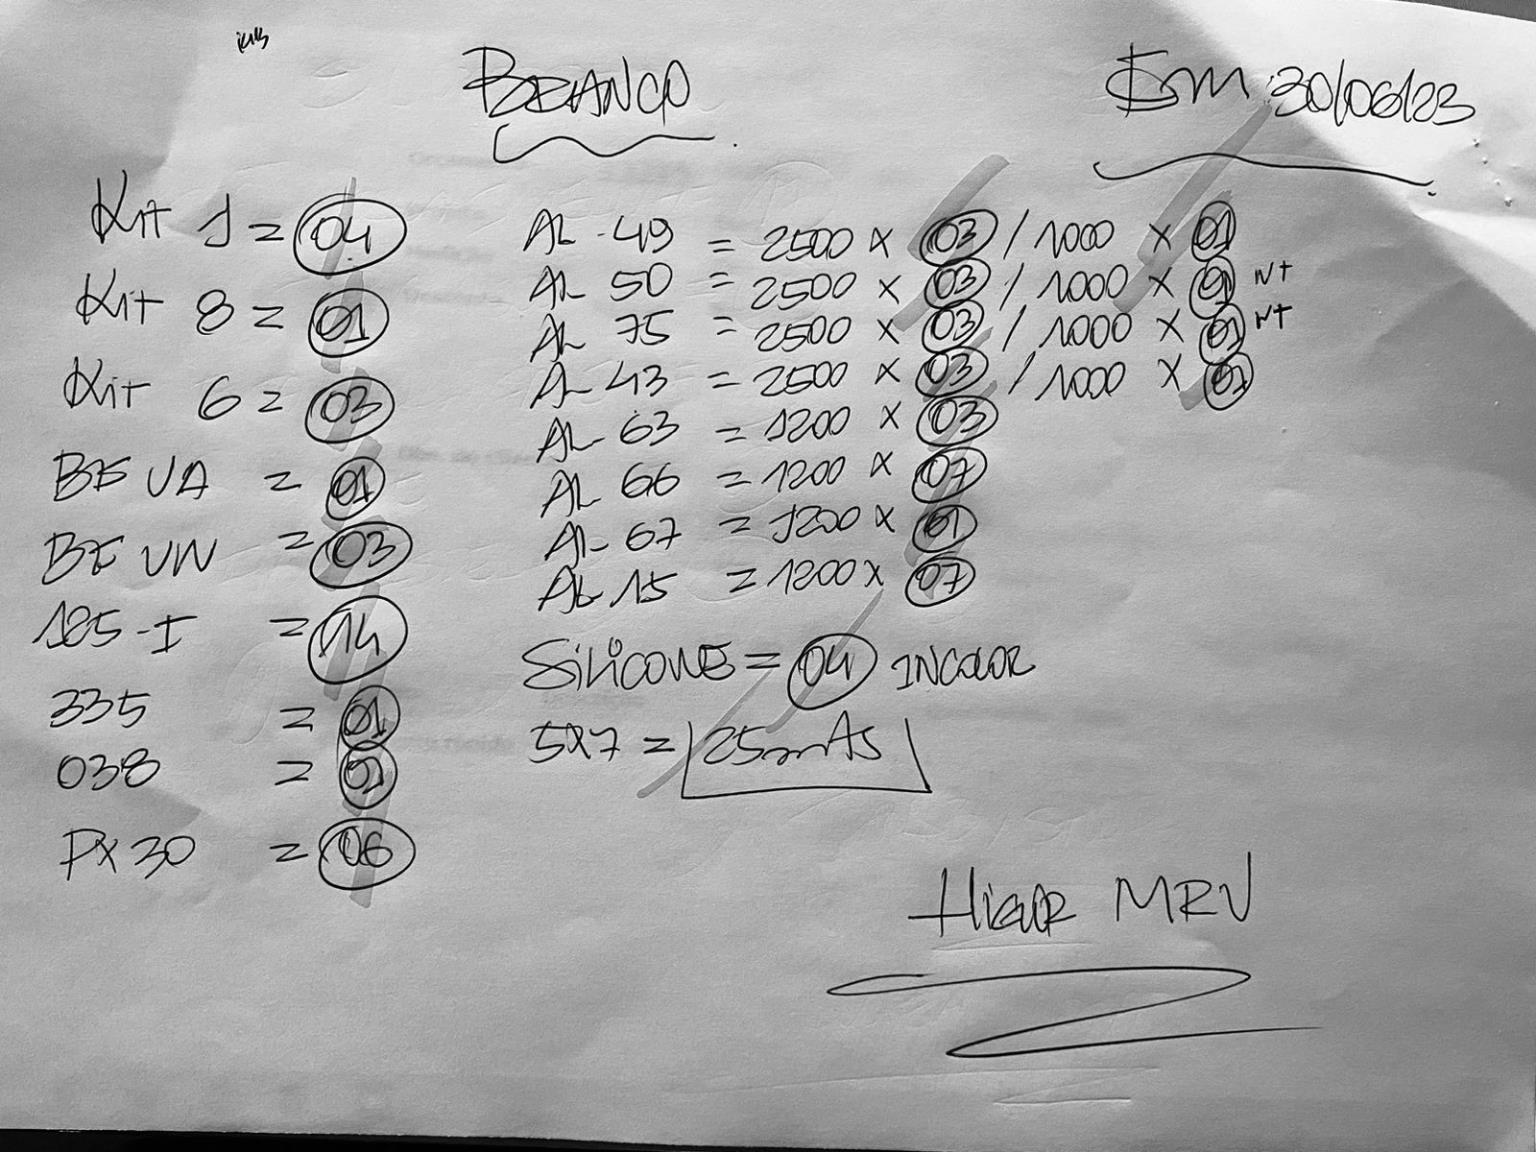 BRANCO
Em 30/06/23
Kit 1 = 04
Kit 8 = 01
Kit 6 = 03
BF VA = 01
BF VN = 03
185-I = 14
335 = 01
038 =
PX 30 = 06
AL - 49 = 2500 X 03 / 1000 X 01
AL 50 = 2500 X 03 / 1000 X 01 NT
AL 75 = 2500 X 03 / 1000 X 01 NT
AL 43 = 2500 X 03 / 1000 X 01
AL 63 = 1200 X 03
AL 66 = 1200 X 07
AL 67 = 1200 X 01
AL 15 = 1200 X 07
SILICONE = 04 INCOLOR
5X7 = 25mts
MRV